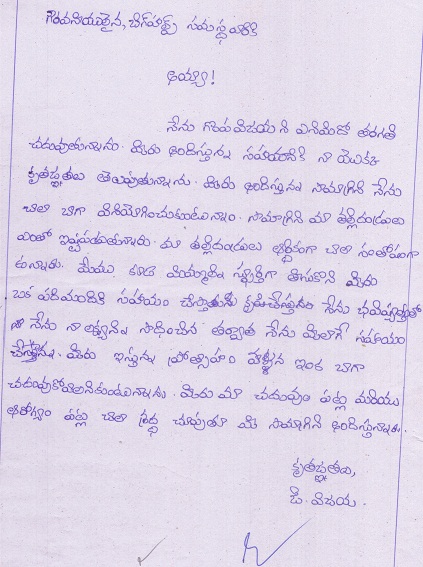 గౌరవనీయులైన, బిగ్‌హెల్ప్ సమస్థ వారికి
అయ్యా!
నేను గొంప విజయ ని ఎనిమిదో తరగతి
చదువుతున్నాను. మీరు అందిస్తున్న సహాయానికి నా యొక్క
కృతజ్ఞతలు తెలుపుతున్నాను. మీరు అందిస్తున్న సామాగ్రిని నేను
చాలా బాగా వినియోగించుకుంటున్నాం. సామాగ్రిని మా తల్లిదండ్రులు
ఎంతో ఇష్టపడుతున్నారు. మా తల్లిదండ్రులు ఆర్థికంగా చాలా సంతోషంగా
ఉన్నారు. మేము కూడా మిమ్మల్ని స్ఫూర్తిగా తీసుకొని మీరు
ఒక పదిమందికి సహాయం చేస్తాను కృషిచేస్తాను నేను భవిష్యత్తులో
నేను నా లక్ష్యాన్ని సాధించిన తర్వాత నేను మీలాగే సహాయం
చేస్తాను. మీరు ఇస్తున్న ప్రోత్సాహం వల్లన ఇంకా బాగా
చదువుకోవాలనికుంటున్నాను. మీరు మా చదువుల పట్ల మరియు
ఆరోగ్యం పట్ల చాలా శ్రద్ధ చూపుతూ మీ సామాగ్రిని అందిస్తున్నారు.
కృతజ్ఞతలు,
జి. విజయ.